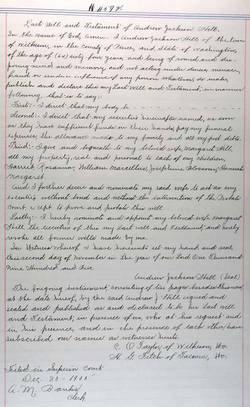 Last Will and Testament of Andrew Jackson Hill.
In the name of God, Amen. I Andrew Jackson Hill of the town
of Wilkeson, in the county of Pierce, and State of Washington
of the age of sixty four years, and being of sound and dis-
posing mind and memory, and not acting under duress, menace,
fraud or undue influence of any person whatever do make
publish and declare this my Last Will and Testament, in manner
following, that is to say:
First: I direct that my body be
Second: I direct that my executrix hereinafter named, as soon
as they have sufficient funds in their hands pay my funeral
expenses the allowance made to my family and all my just debts.
Third: I give and bequeath to my beloved wife, Margaret Hill
all my property, real and personal to each of my children,
William Marcellus, Josephine,
Margaret
And I further desire and nominate my said wife to act as my
executrix without bond and without the intervention of the Probate
court, except to prove and probate this will.
Lastly: I hereby nominate and appoint my beloved wife, Margaret
Hill the executrix of this my last will and Testament and hereby
revoke all former wills made by me.
In Witness Whereof I have hereunto set my hand and seal
this second day of November in the year of our Lord One thousand
Nine Hundred and Five
Andrew Jackson Hill (Seal)
The foregoing instrument consisting of one page besides this was
at the date hereof, by the said Andrew J Hill signed and
sealed and published as and declared to be his last will
and Testament, in presence of us, who at his request and
in his presence, and in the presence of each other, have
subscribed our names as witnesses hereto
Taylor of Wilkeson, Wn.
H. G. Fitch of Tacoma, Wn.
Filed in Superior Court
Dec 20
A. M. Banks
Clerk